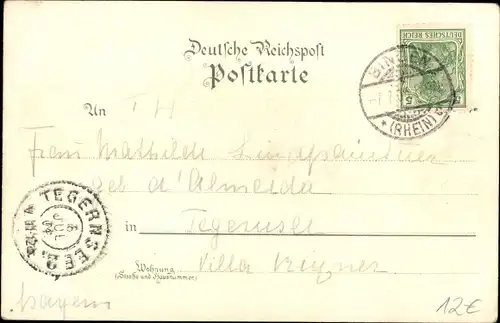 Deutsche Reichspost
Postkarte
DEUTSCHES REICH
5
BINGEN
* (RHEIN)
An
Frau Mathilde
geb d'Almeida
in Tegernsee
Wohnung
(Straße und Hausnummer)
Villa
TEGERNSEE 2.
JUL
04
Bayern
12€